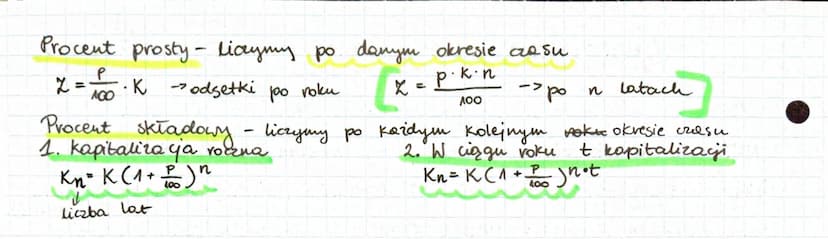 Procent prosty - liczymy po danym okresie czasu
Z = p/100 · K → odsetki po roku [Z = p·K·n/100 → po n latach]
Procent składowy - liczymy po każdym kolejnym roku okresie czasu
1. kapitalizacja roczna 2. W ciągu roku t kapitalizacji
Kn = K(1 + p/100)^n Kn = K(1 + p/100)^n·t
liczba lat